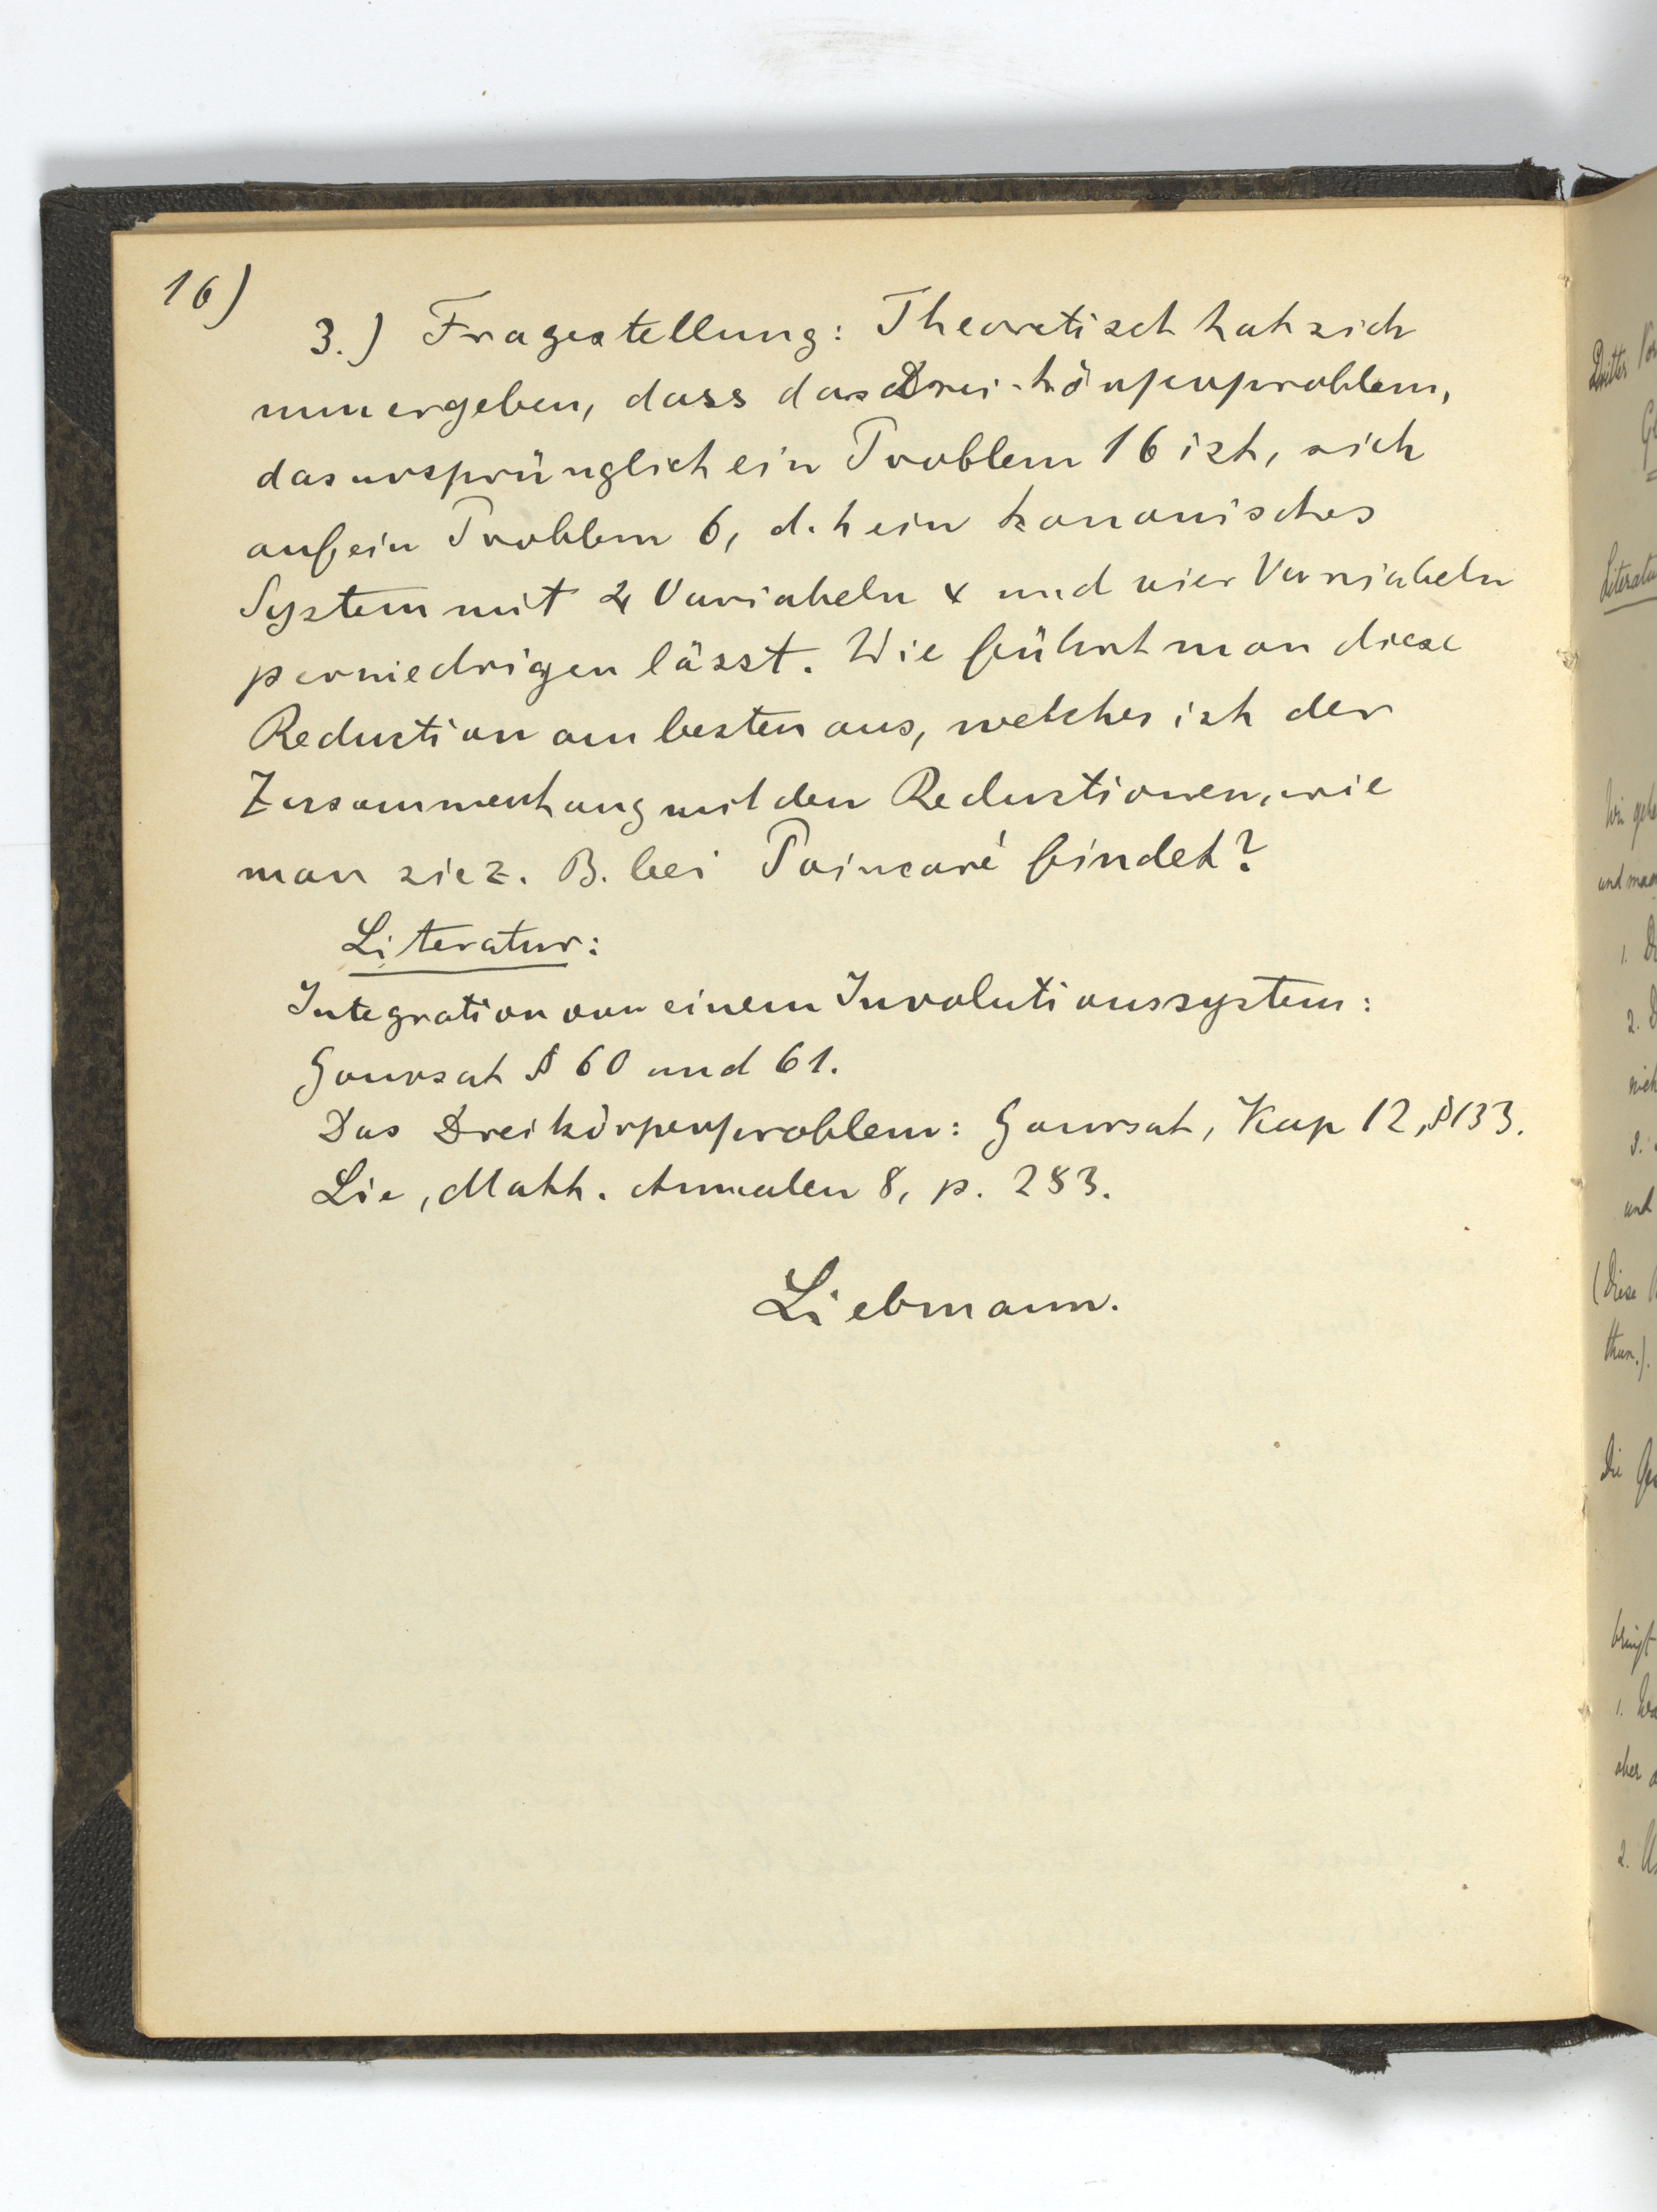 16)
3.) Fragestellung: Theoretisch hat sich
nun ergeben, dass das Drei-körperproblem,
das ursprünglich ein Problem 16 ist, sich
auf ein Problem 6, d. h ein kanonisches
System mit 4 Variabeln x und vier Variabeln
p erniedrigen lässt. Wie führt man diese
Reduction am besten aus, welcher ist der
Zusammenhang mit den Reductionen, wie
man sie z. B. bei Poincaré findet?
Literatur:
Integration von einem Involutionssystem:
Goursat § 60 und 61.
Das Dreikörperproblem: Goursat, Kap 12, § 133.
Lie, Math. Annalen 8, p. 283.
Liebmann.
Dritter
Literatur
Wir
und
1.
2.
und
(Diese
thun.).
Die
bringt
1.
aber
2.